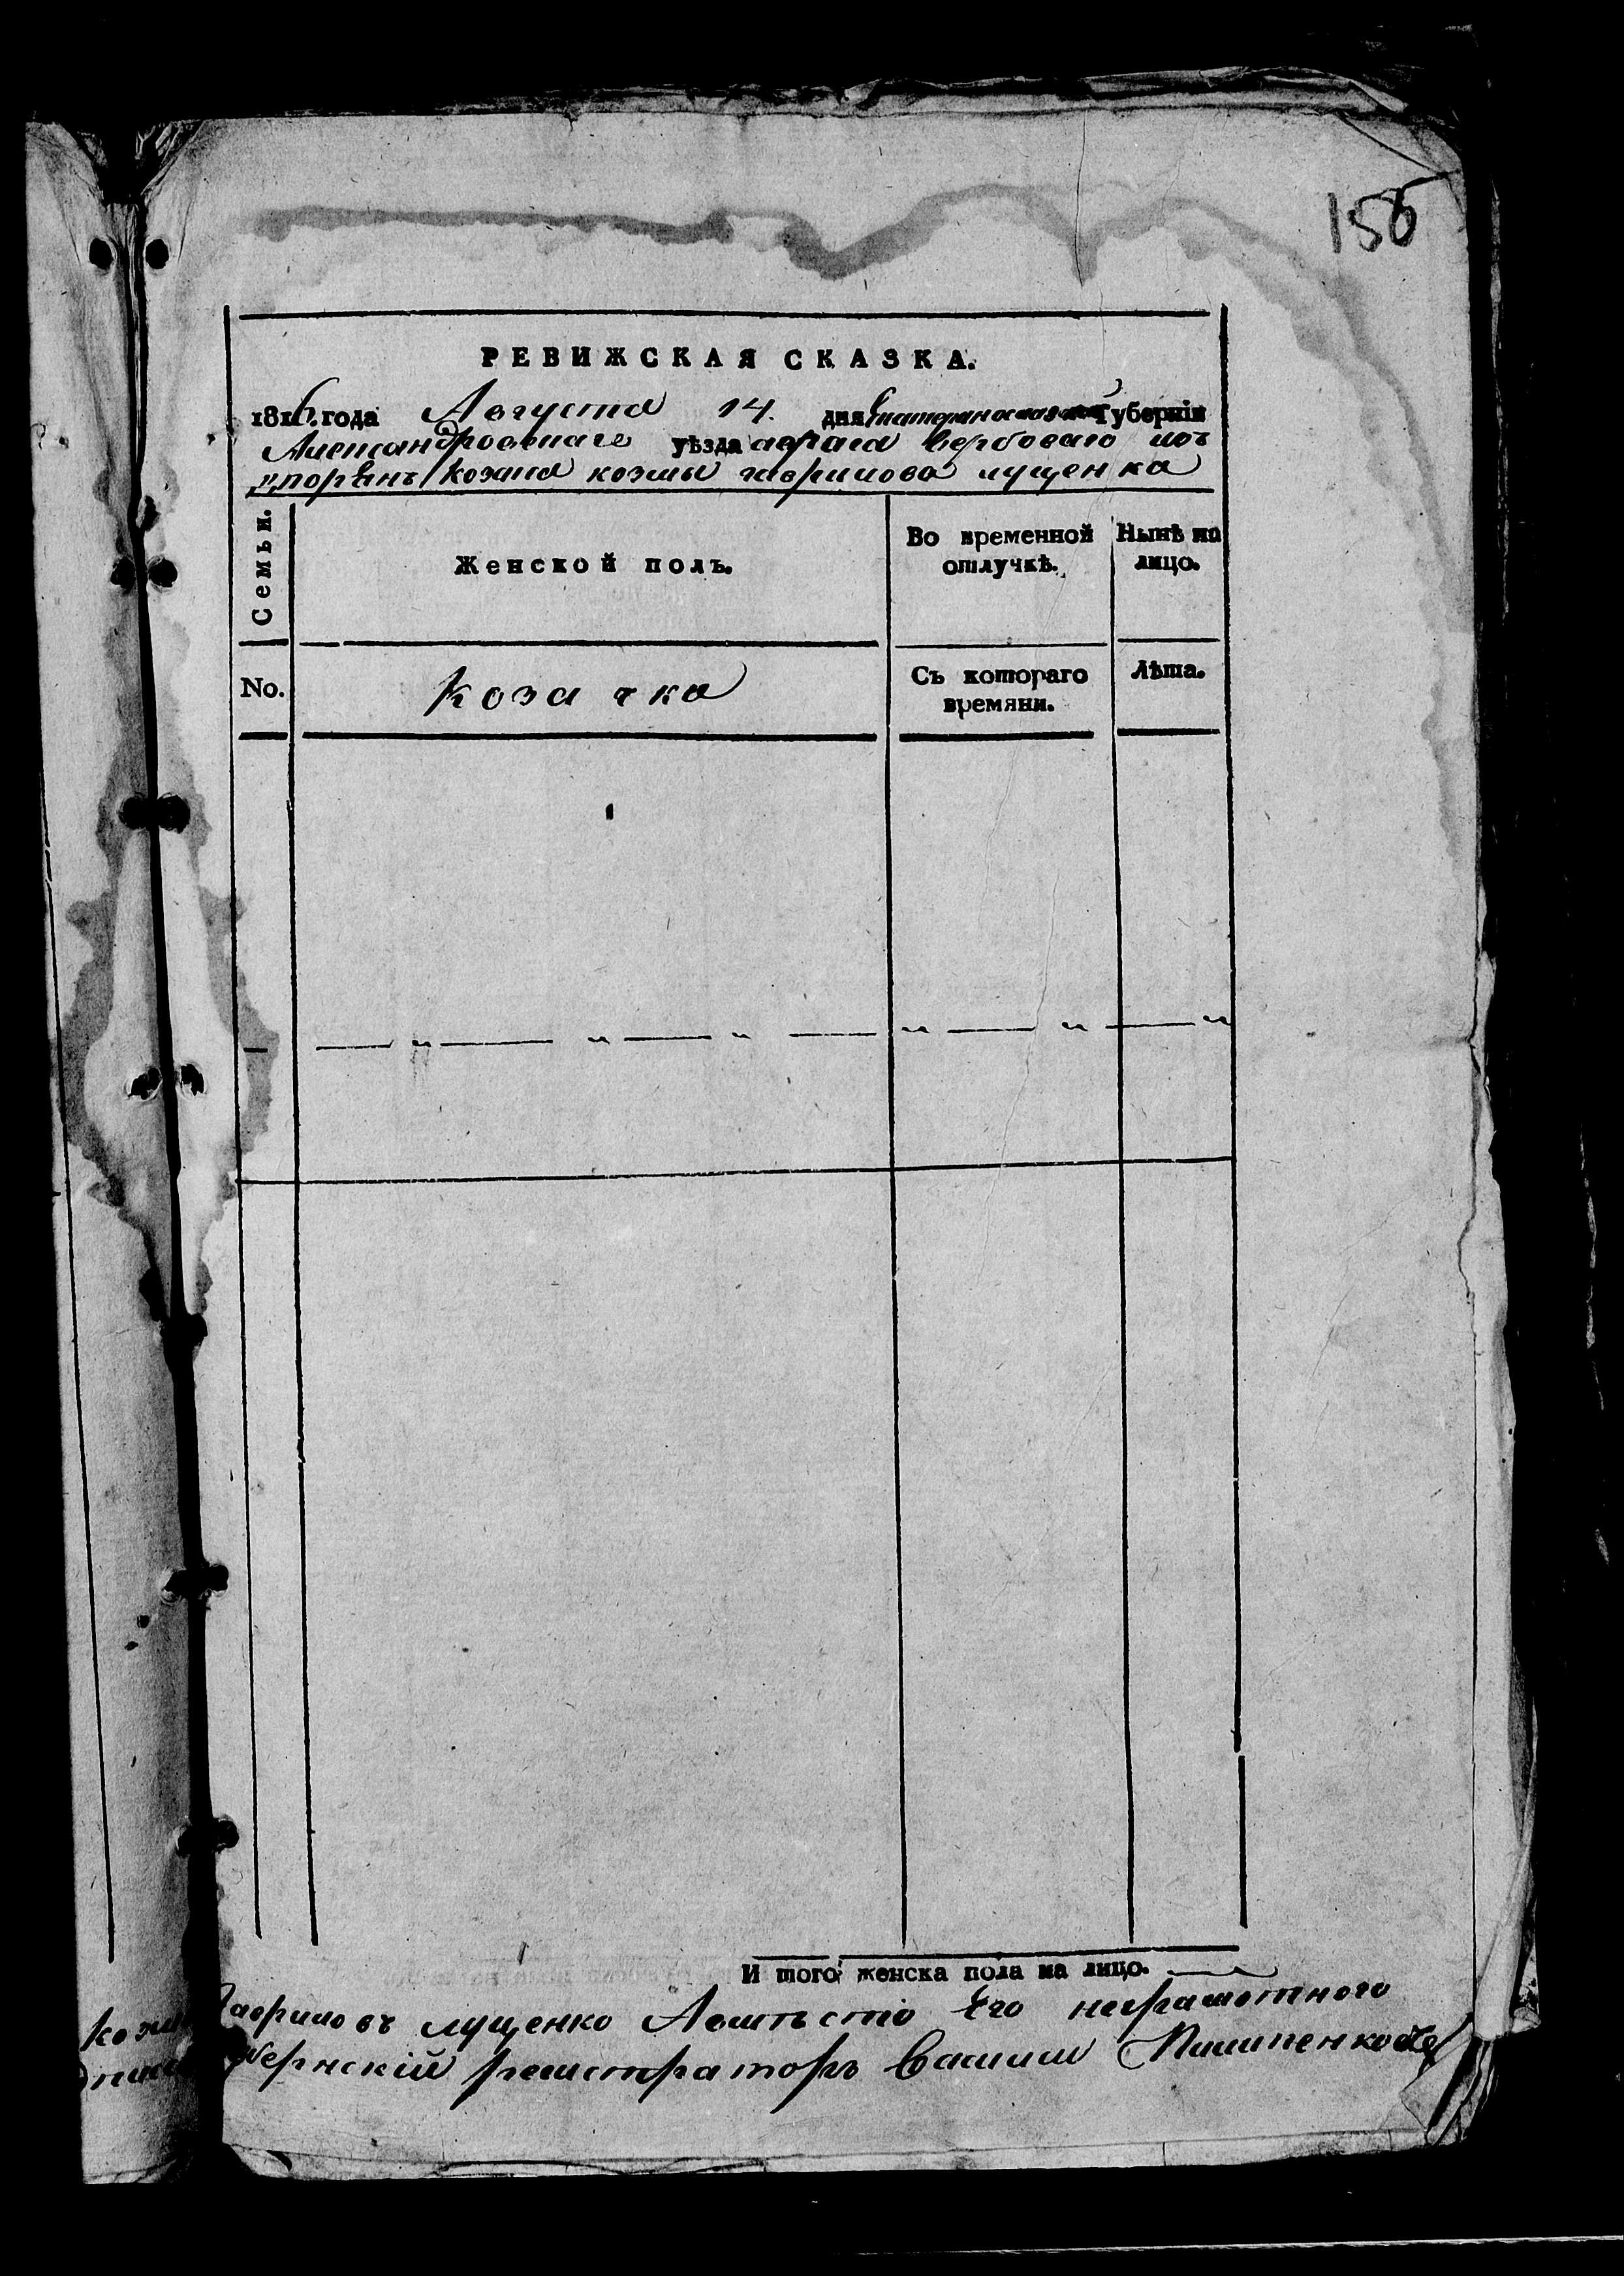 156
РЕВИЖСКАЯ СКАЗКА.
1816. года Августа 14. дня Екатеринославской Губерніи
Александровскаго уѣзда оврага Вербоваго изъ
дворянъ козака козмы гаврилова лущенка
Семьи.
Женской полъ.
Во временной отлучкѣ.
Нынѣ на лицо.
No.
козачка
Съ котораго времяни.
Лѣта.
И того женска пола на лицо.
Гавриловъ лущенко Авмѣсто его неграмотного
регистраторъ Василий Пилипенковъ